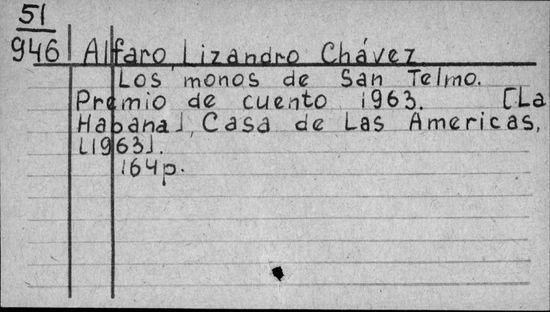 51
946
Alfaro, Lizandro Chávez
Los monos de San Telmo.
Premio de cuento 1963. [La
Habana], Casa de Las Americas,
[1963].
164p.